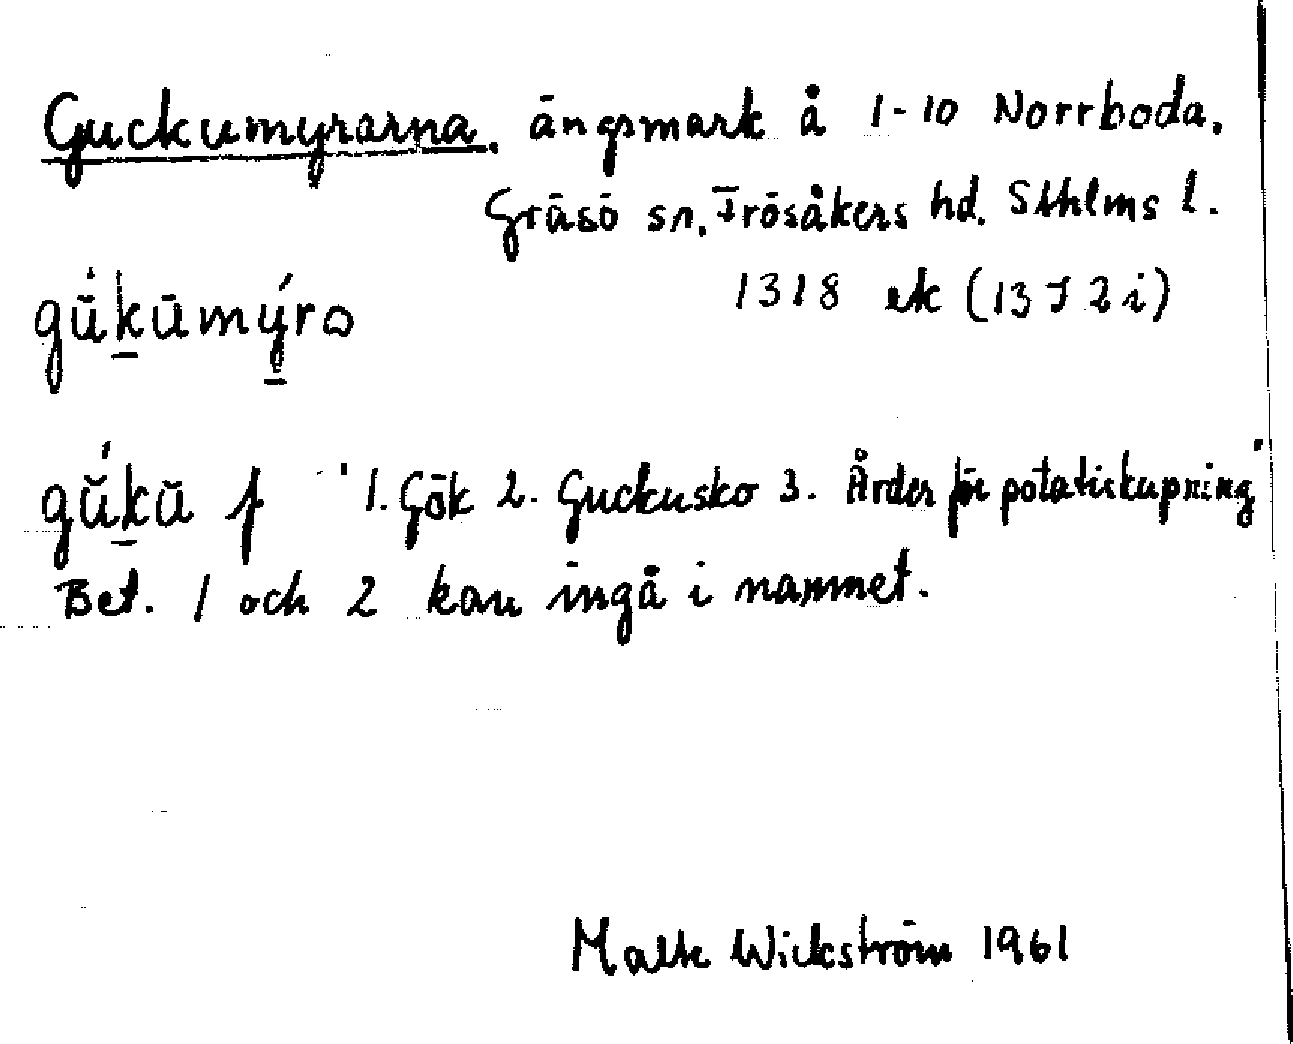 Guckumyrarna. ängsmark å 1-10 Norrboda.
Gräsö sn. Frösåkers hd. Sthlms l.
1318 ek (13 I 2 i)
gŭ́k̲ŭmý̲ro
gŭ́k̲ŭ f "1. Gök 2. Guckusko 3. Årder för potatiskupning"
Bet. 1 och 2 kan ingå i namnet.
Malte Wickström 1961